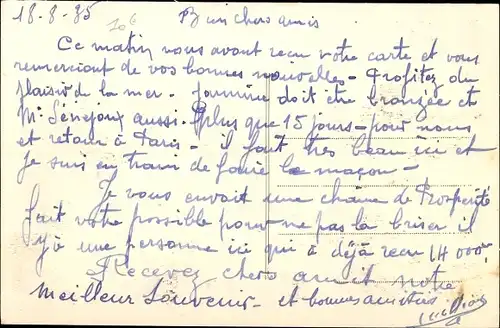 18-8-35
Bien chers amis
Ce matin nous avont recu votre carte et vous
remerciont de vos bonnes nouvelles - Profitez du
plaisir de la mer - Jeannine doit être bronzée et
Mr aussi - Plus que 15 jours - pour nous
et retour à Paris - il fait très beau ici et
Je suis en train de faire le maçon -
Je vous envoit une chaine de Prosperité
fait votre possible pour ne pas la briser il
y à une personne ici qui à déjà recu 14 000f
Recevez chers ami notre
Meilleur Souvenir - et bonnes amitiés